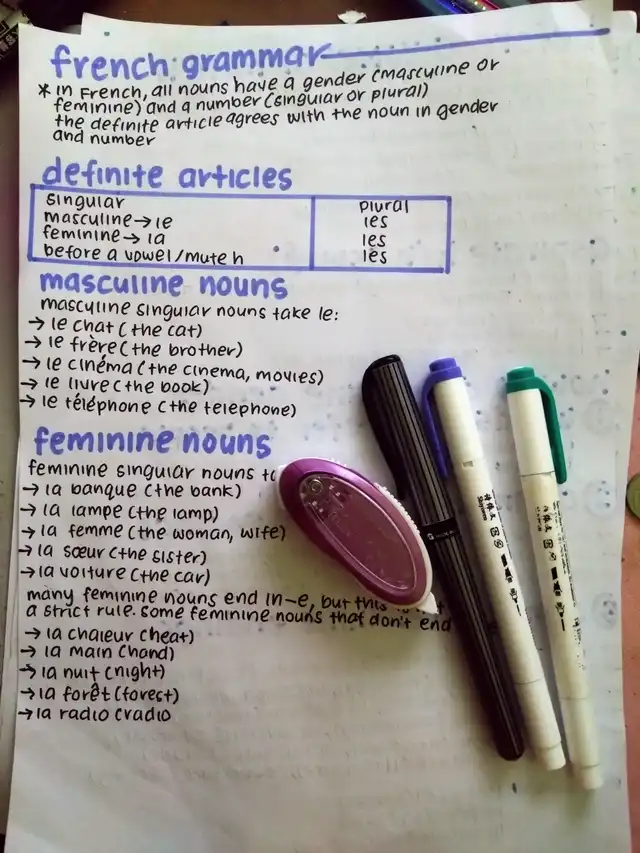 french grammar
* in French, all nouns have a gender (masculine or
feminine) and a number (singular or plural)
the definite article agrees with the noun in gender
and number
definite articles
singular plural
masculine → le les
feminine → la les
before a vowel/mute h les
masculine nouns
masculine singular nouns take le:
→ le chat (the cat)
→ le frère (the brother)
→ le cinéma (the cinema, movies)
→ le livre (the book)
→ le téléphone (the telephone)
feminine nouns
feminine singular nouns
→ la banque (the bank)
→ la lampe (the lamp)
→ la femme (the woman, wife)
→ la sœur (the sister)
→ la voiture (the car)
many feminine nouns end in -e, but this
a strict rule. some feminine nouns that don't end
→ la chaleur (heat)
→ la main (hand)
→ la nuit (night)
→ la forêt (forest)
→ la radio (radio